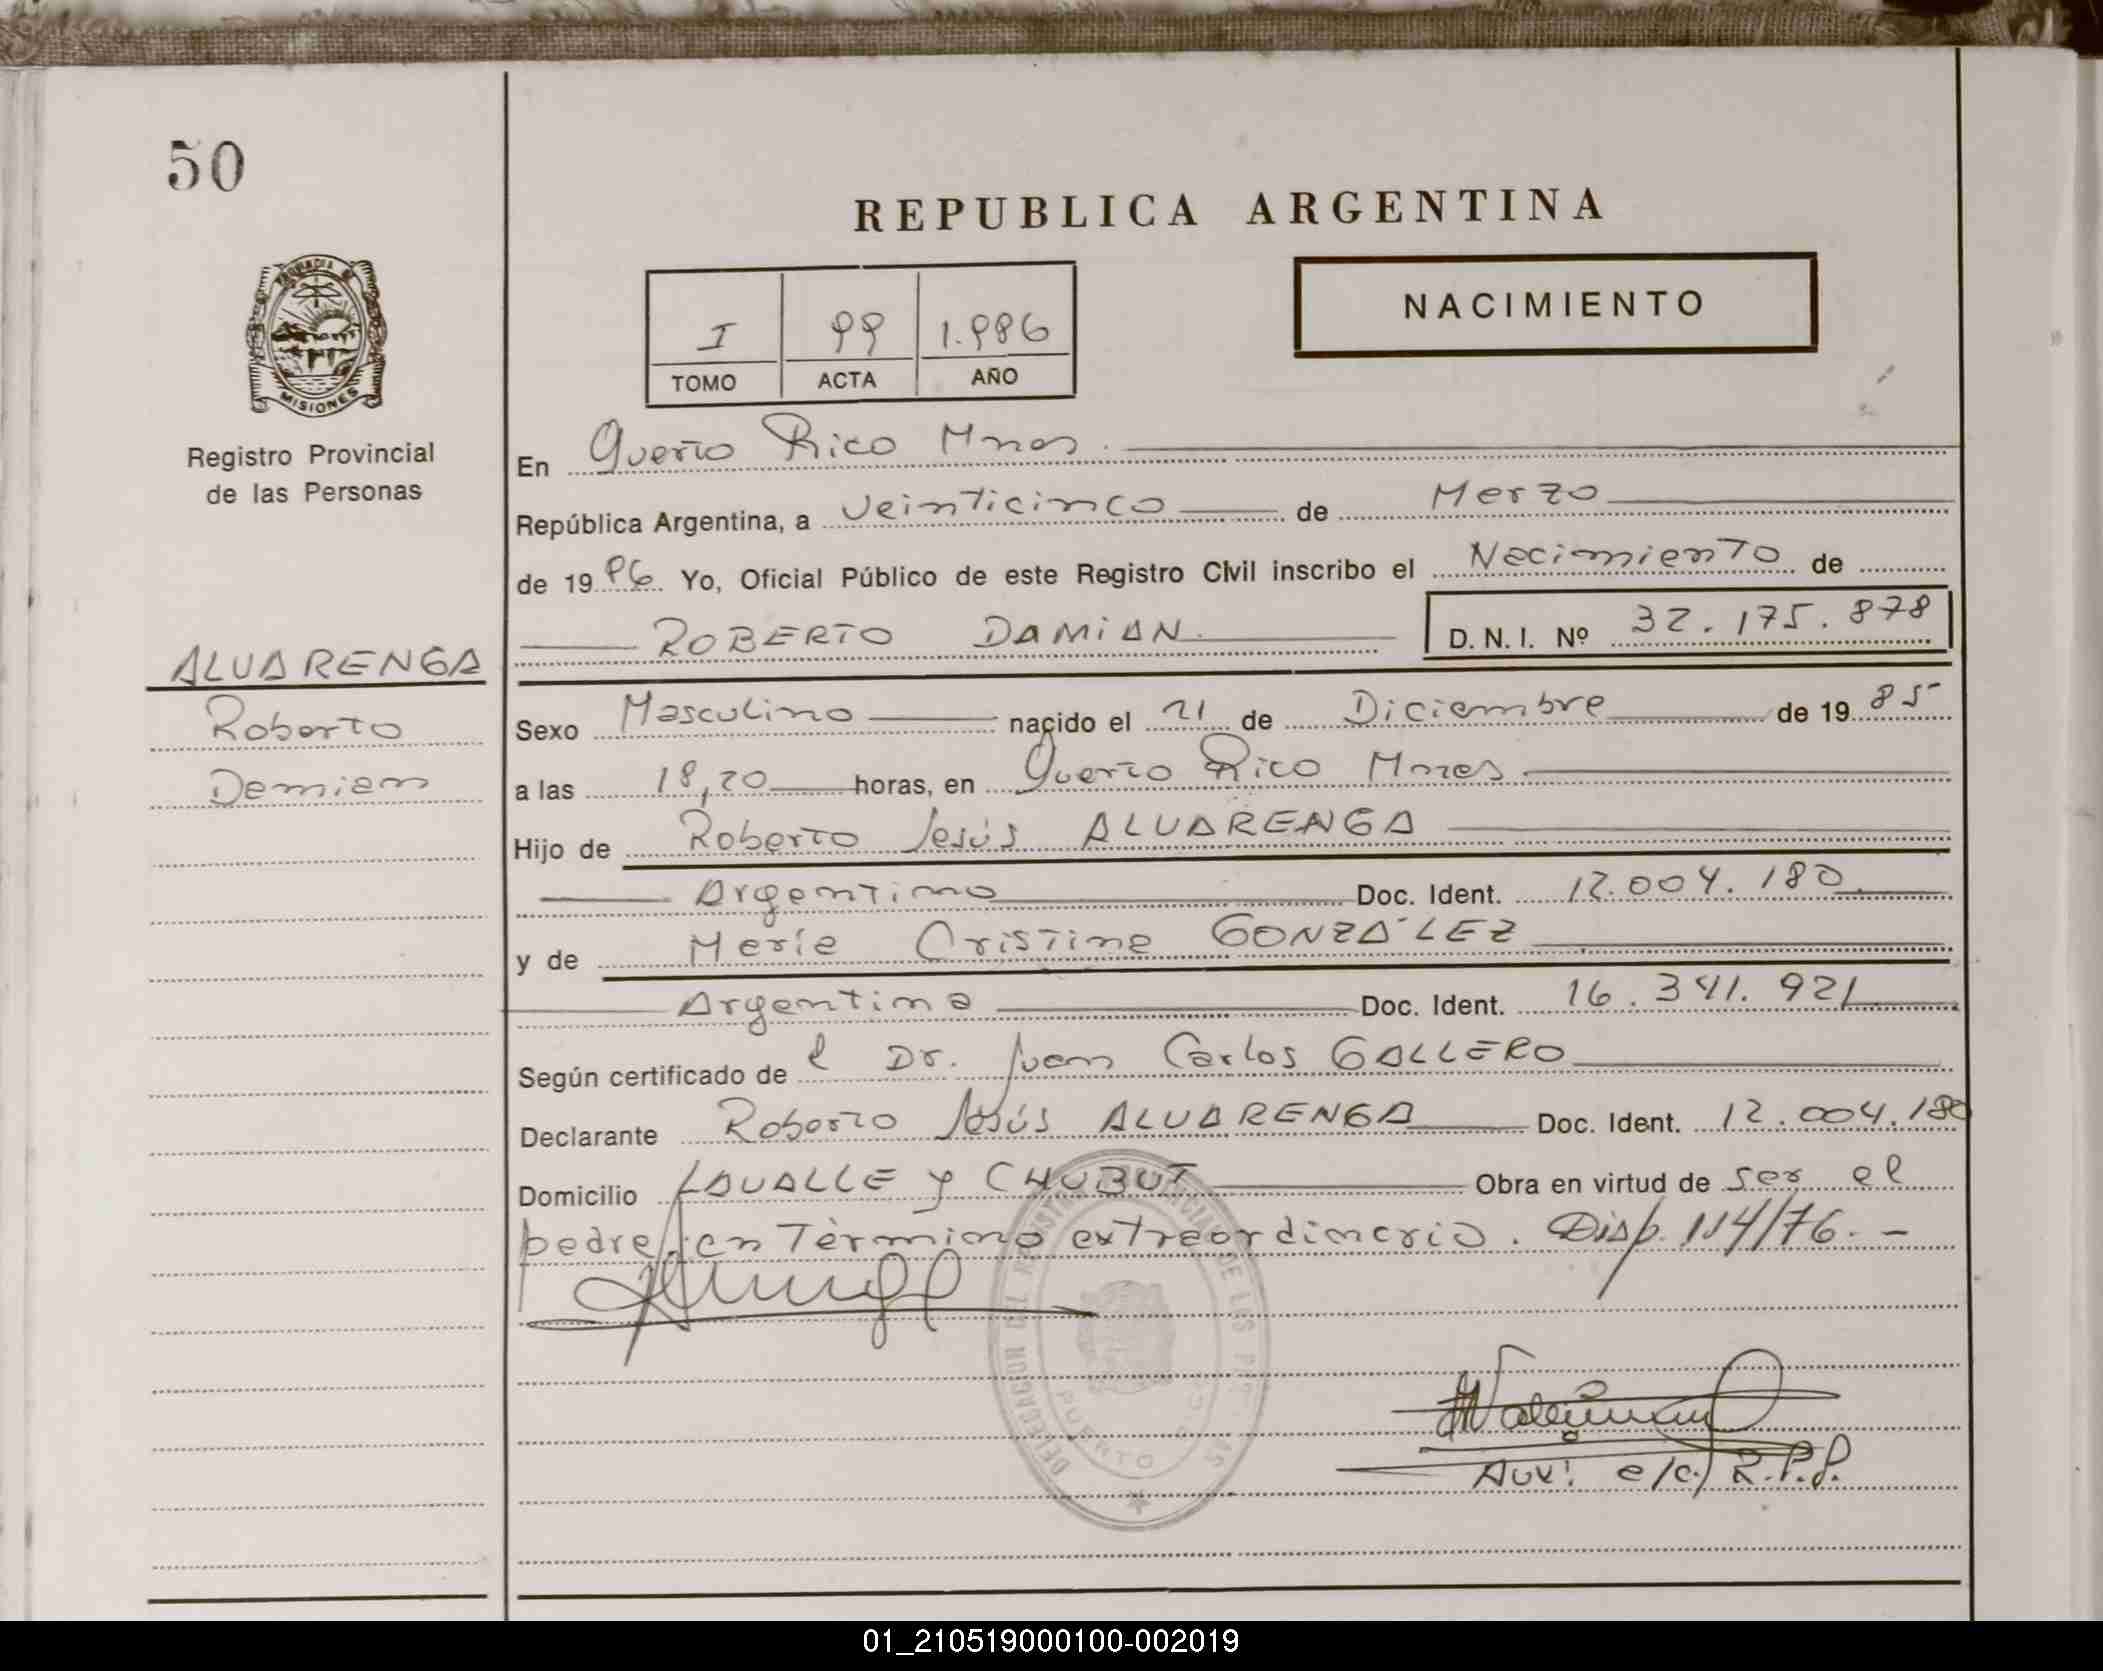 50
REPUBLICA ARGENTINA
NACIMIENTO
I 99 1.986
TOMO ACTA AÑO
PROVINCIA DE
MISIONES
Registro Provincial
de las Personas
En Puerto Rico Mnes.
República Argentina, a veinticinco de Marzo
de 19 86 Yo, Oficial Público de este Registro Civil inscribo el Nacimiento de
ROBERTO DAMIAN. D. N. I. Nº 32.175.878
ALVARENGA
Roberto
Damian
Sexo Masculino nacido el 21 de Diciembre de 19 85
a las 18,20 horas, en Puerto Rico Mnes.
Hijo de Roberto Jesús ALVARENGA
Argentino Doc. Ident. 12.004.180
y de María Cristina GONZÁLEZ
Argentina Doc. Ident. 16.341.921
Según certificado de l Dr. Juan Carlos GALLERO
Declarante Roberto Jesús ALVARENGA Doc. Ident. 12.004.180
Domicilio LAVALLE y CHUBUT Obra en virtud de ser el
padre, en Término extraordinario. Disp. 114/76.-
DELEGACION DEL REGISTRO PROVINCIAL DE LAS PERSONAS
PUERTO RICO
Aux. e/c/ R.P.P.
01_210519000100-002019